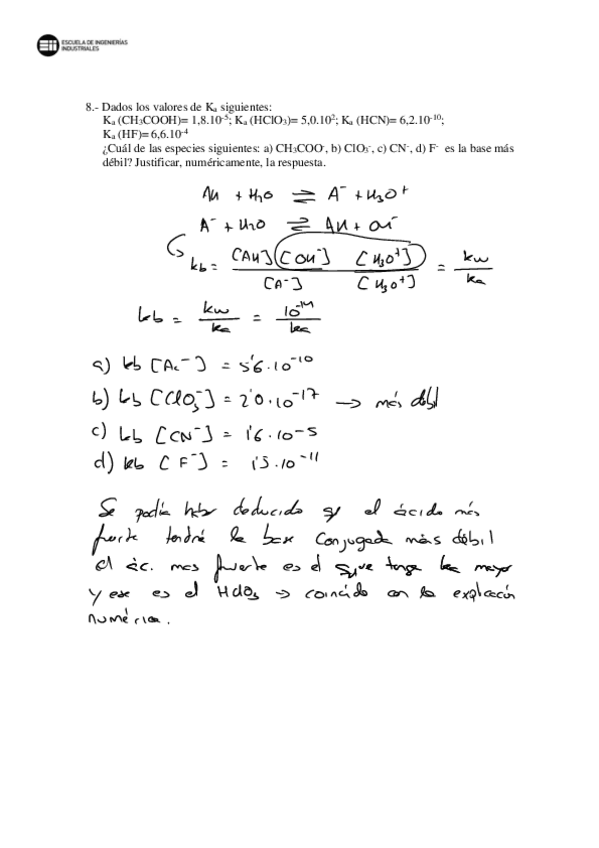 ESCUELA DE INGENIERÍAS
INDUSTRIALES
8.- Dados los valores de Kₐ siguientes:
Kₐ (CH₃COOH)= 1,8.10⁻⁵; Kₐ (HClO₃)= 5,0.10²; Kₐ (HCN)= 6,2.10⁻¹⁰;
Kₐ (HF)= 6,6.10⁻⁴
¿Cuál de las especies siguientes: a) CH₃COO⁻, b) ClO₃⁻, c) CN⁻, d) F⁻ es la base más
débil? Justificar, numéricamente, la respuesta.
AH + H₂O ⇌ A⁻ + H₃O⁺
A⁻ + H₂O ⇌ AH + OH⁻
kb = [AH][OH⁻] [H₃O⁺] / [A⁻] [H₃O⁺] = kw / ka
kb = kw / ka = 10⁻¹⁴ / ka
a) kb [Ac⁻] = 5'6.10⁻¹⁰
b) kb [ClO₃⁻] = 2'0.10⁻¹⁷ → más débil
c) kb [CN⁻] = 1'6.10⁻⁵
d) kb [F⁻] = 1'5.10⁻¹¹
Se podía haber deducido q/ el ácido más
fuerte tendrá la base conjugada más débil
el ác. mas fuerte es el que tenga ka mayor
y ese es el HClO₃ → coincide con la explicación
numérica.